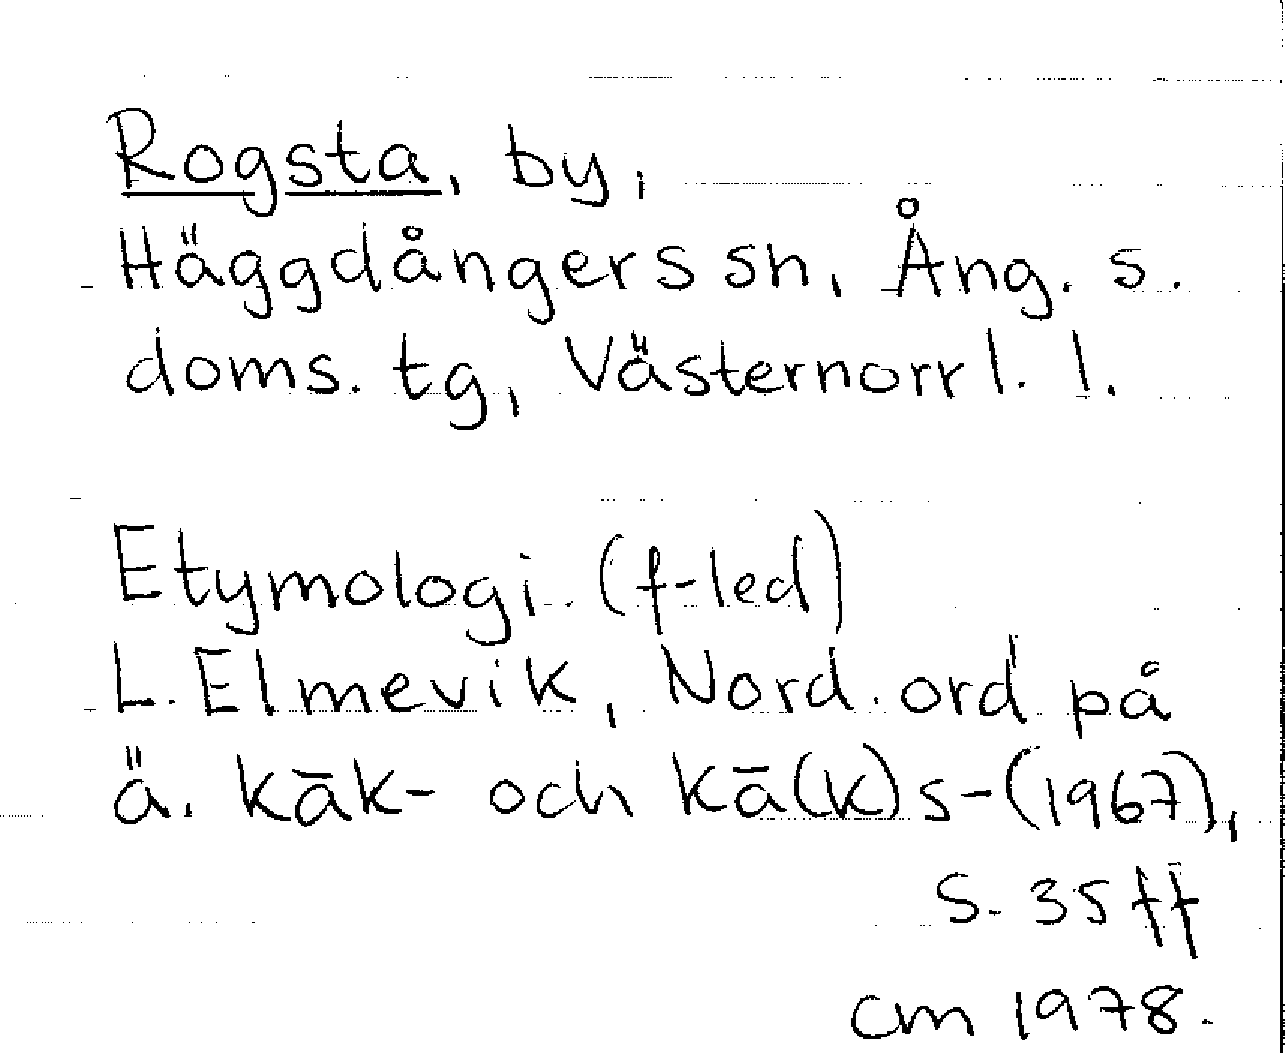 Rogsta, by,
Häggdångers sn, Ång. s.
doms. tg, Västernorrl. l.
Etymologi (f-led)
L. Elmevik, Nord. ord på
ä. kāk- och kā(k)s- (1967),
s. 35 ff
cm 1978.